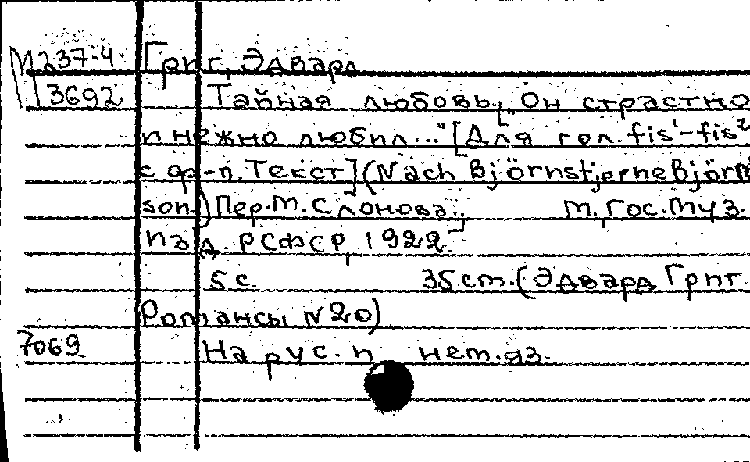 М237-4 Григ, Эдвард
3692 Тайная любовь „Он страстно
и нежно любил..." [Для гол. fis¹-fis²
с ф-п. Текст] (Nach Björnstjerne Björn
son.) Пер. М. Слонова. М, Гос. муз.
изд. РСФСР, 1922
5 с. 35 см. (Эдвард Григ.
Романсы №20)
7069 На рус. и нем. яз.